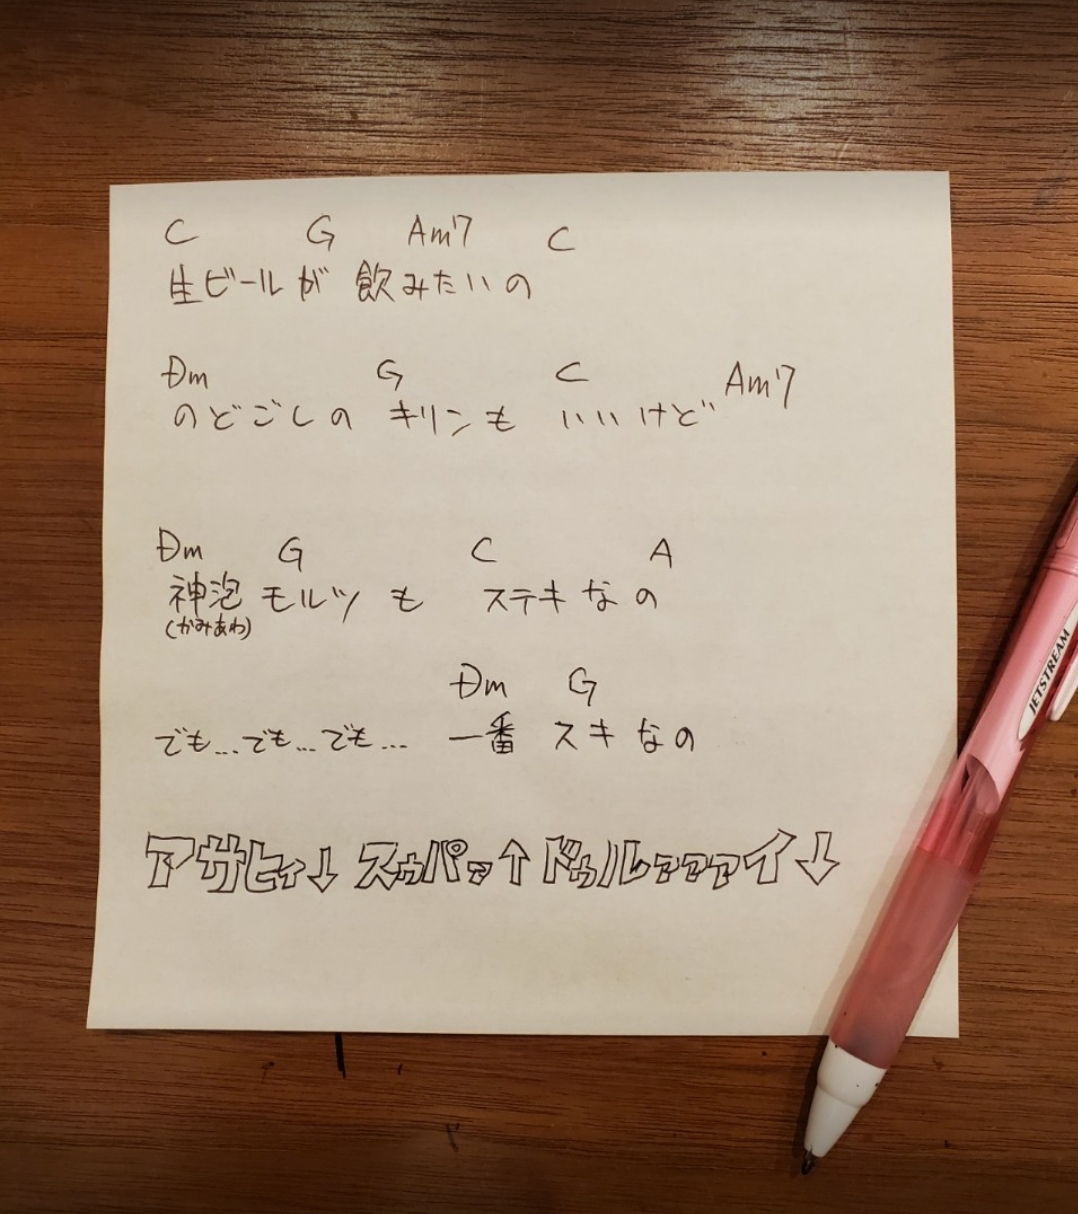 C G Am7 C
生ビールが 飲みたいの
Dm G C Am7
のどごしの キリンも いいけど
Dm G C A
神泡 モルツ も ステキなの
(かみあわ)
Dm G
でも...でも...でも... 一番 スキなの
アサヒィ↓ スゥパァ↑ ドゥルァァァイ↓
JETSTREAM